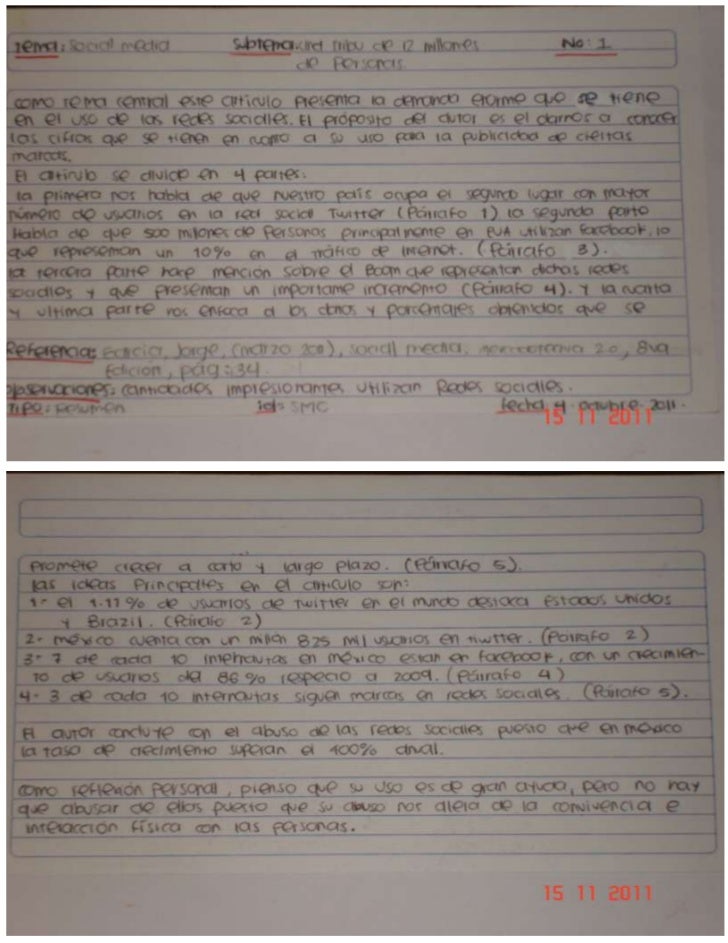 Tema: Social media Subtema: una tribu de 12 millones No: 1
de Personas
como tema central este articulo Presenta la demanda enorme que se tiene
en el uso de las redes sociales. El proposito del autor es el darnos a conocer
las cifras que se tienen en cuanto a su uso para la publicidad de ciertas
marcas.
El articulo se divide en 4 partes:
la primera nos habla de que nuestro pais ocupa el segundo lugar con mayor
número de usuarios en la red social Twitter (Párrafo 1) la segunda parte
Habla de que 500 millones de Personas principalmente en EUA utilizan facebook, lo
que representan un 10% en el tráfico de internet. (Párrafo 3).
la tercera parte hace mención sobre el Boom que representan dichas redes
sociales y que presentan un importante incremento (Párrafo 4). Y la cuarta
y ultima parte nos enfoca a los datos y porcentajes obtenidos que se
Referencia: Jorge, (marzo social media. 2.0, 8va
Edicion, pág: 34.
Observaciones: cantidades impresionantes utilizan Redes sociales.
Tipo: Resumen id: SMC fecha 4 octubre 2011.
15 11 2011
Promete crecer a corto y largo plazo. (Párrafo 5).
las ideas Principales en el articulo son:
1.- el 1.17% de usuarios de twitter en el mundo destaca Estados Unidos
y Brazil. (Párrafo 2)
2.- méxico cuenta con un millon 825 mil usuarios en twitter. (Párrafo 2)
3.- 7 de cada 10 internautas en méxico estan en facebook, con un crecimien-
to de usuarios del 86% respecto a 2009. (Párrafo 4)
4.- 3 de cada 10 internautas siguen marcas en redes sociales. (Párrafo 5).
El autor concluye con el abuso de las redes sociales puesto que en méxico
la tasa de crecimiento superan el 400% anual.
como reflexión Personal, pienso que su uso es de gran ayuda, pero no hay
que abusar de ellas puesto que su abuso nos aleja de la convivencia e
interacción física con las personas.
15 11 2011